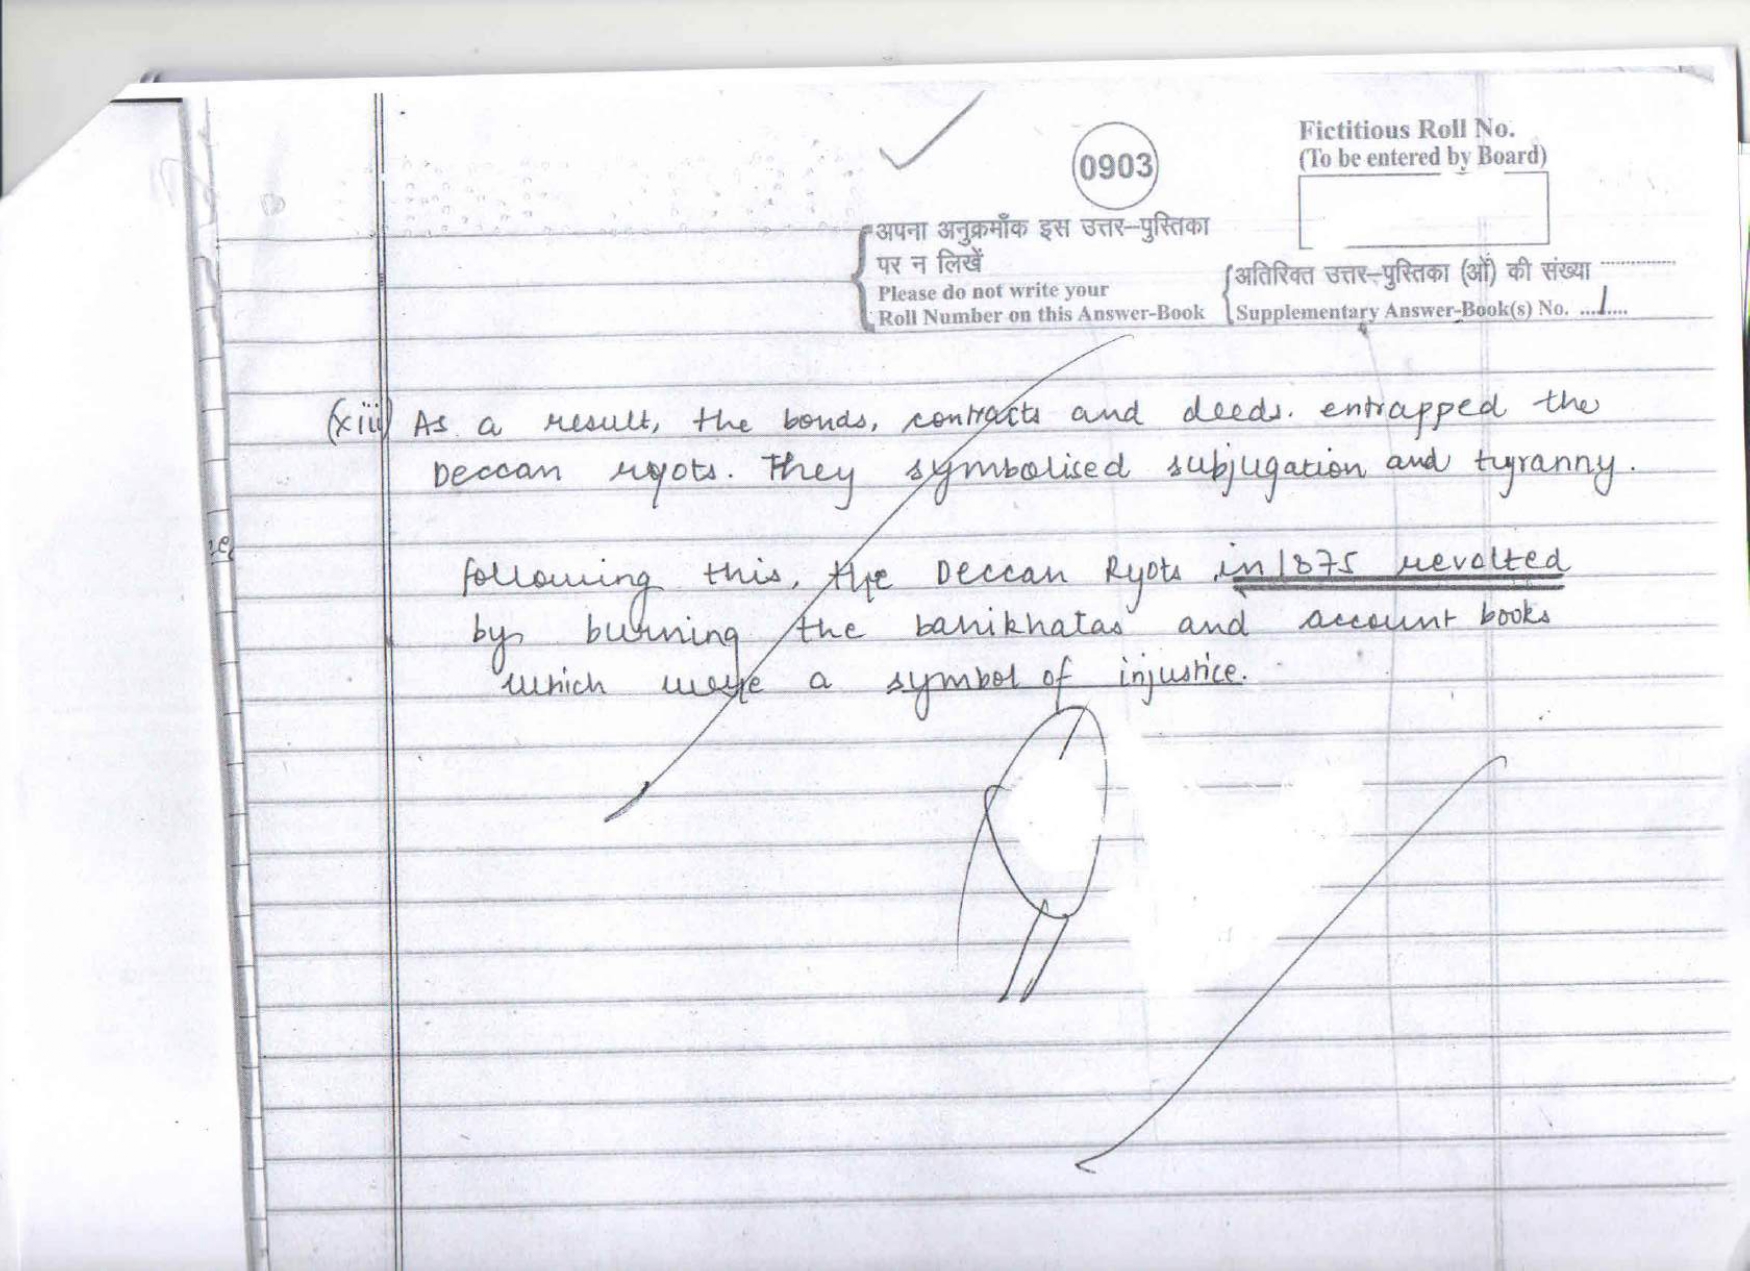 0903
Fictitious Roll No.
(To be entered by Board)
अपना अनुक्रमाँक इस उत्तर–पुस्तिका
पर न लिखें
Please do not write your
Roll Number on this Answer-Book
अतिरिक्त उत्तर–पुस्तिका (ओं) की संख्या ..............
Supplementary Answer-Book(s) No. ....1....
(xiii) As a result, the bonds, contracts and deeds. entrapped the
Deccan ryots. They symbolised subjugation and tyranny.
following this, the Deccan Ryots in 1875 revolted
by burning the bahikhatas and account books
which were a symbol of injustice.